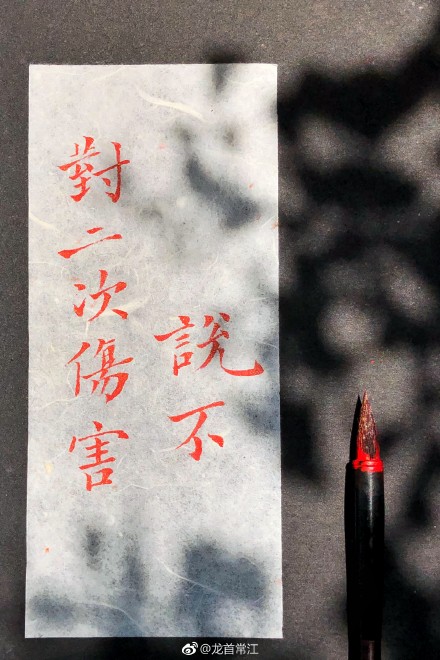 對二次傷害
說不
@龙首常江